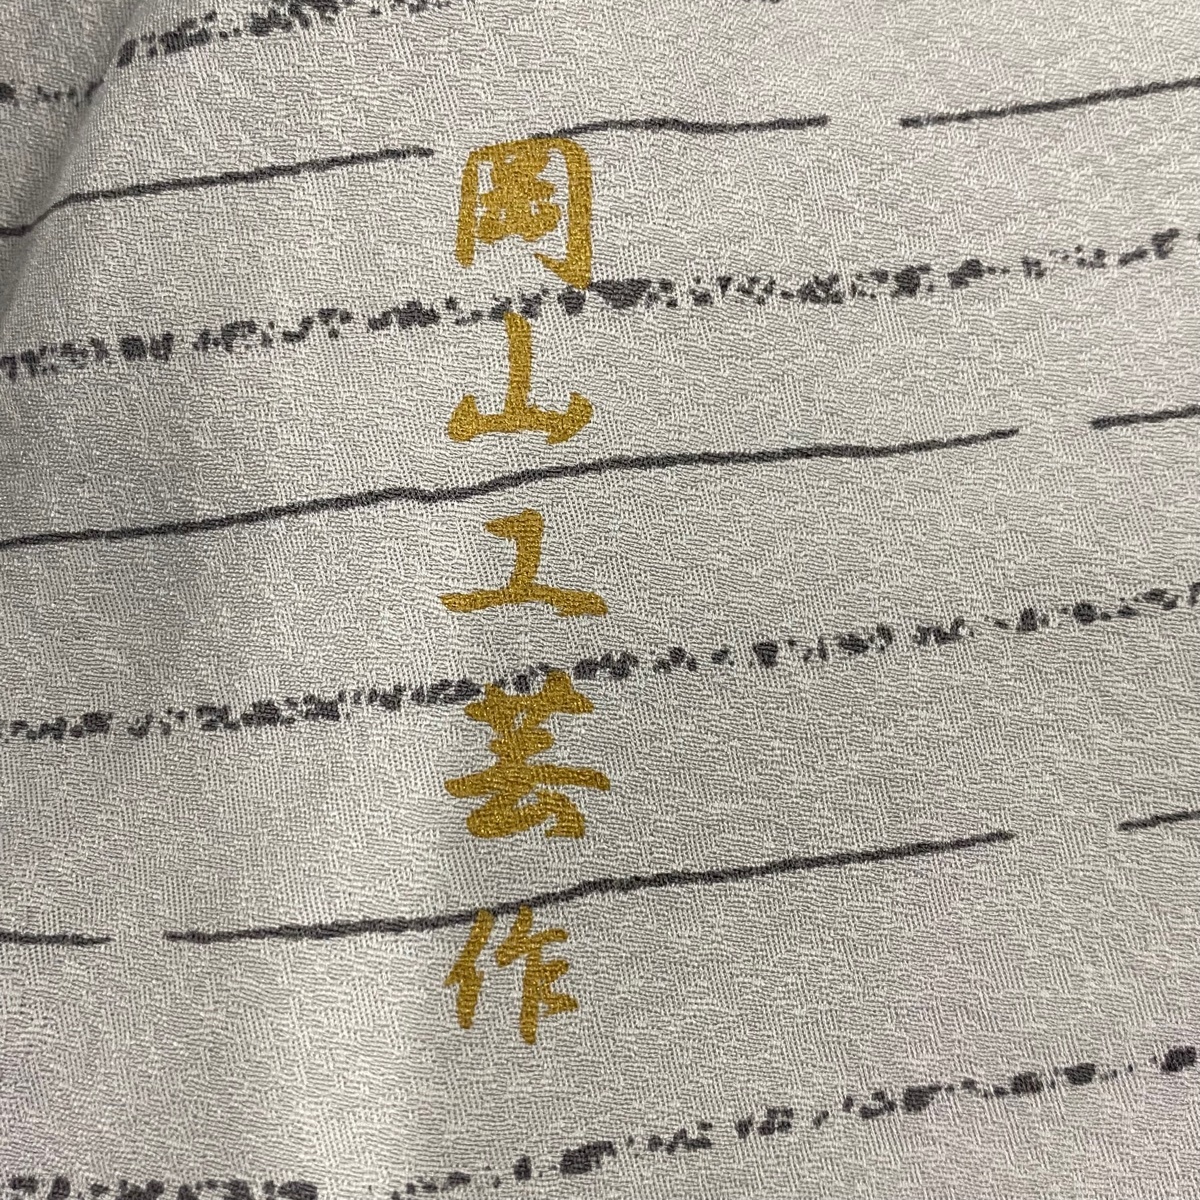 岡山工芸作